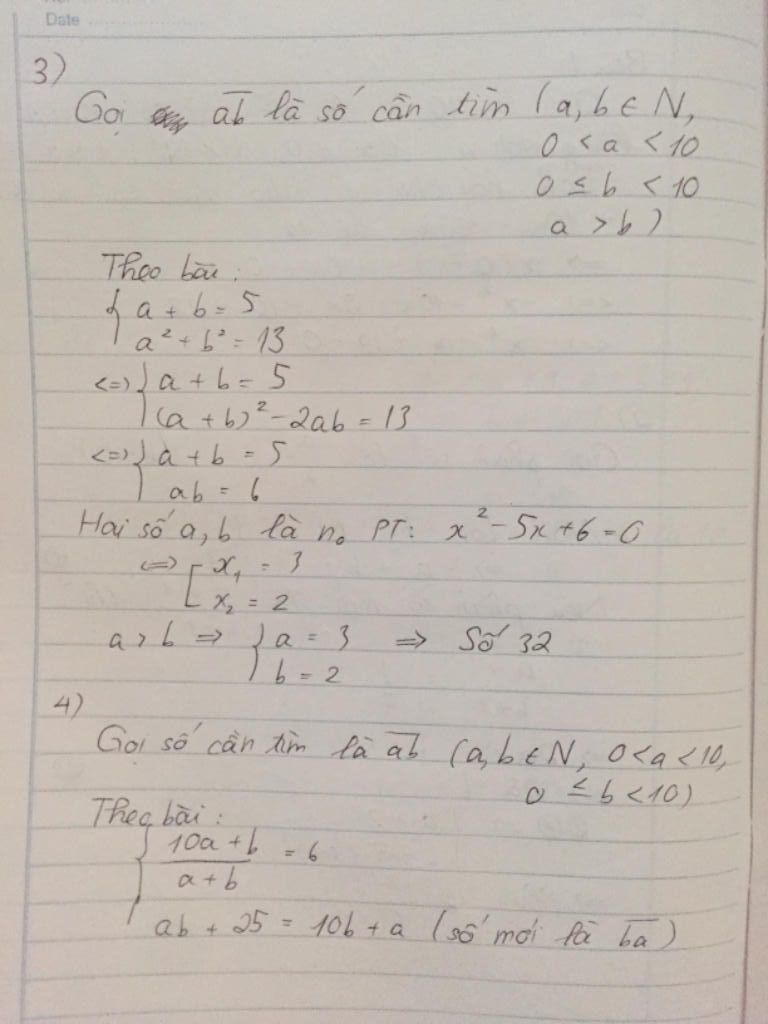 Date
3)
Gọi ab̅ là số cần tìm (a, b ∈ N,
0 < a < 10
0 ≤ b < 10
a > b)
Theo bài:
{ a + b = 5
a² + b² = 13
<=> { a + b = 5
(a + b)² - 2ab = 13
<=> { a + b = 5
ab = 6
Hai số a, b là n₀ PT: x² - 5x + 6 = 0
<=> [ x₁ = 3
x₂ = 2
a > b => { a = 3 => Số 32
b = 2
4)
Gọi số cần tìm là a̅b̅ (a, b ∈ N, 0 < a < 10,
0 ≤ b < 10)
Theo bài:
{ 10a + b
= 6
a + b
ab + 25 = 10b + a (số mới là b̅a̅)